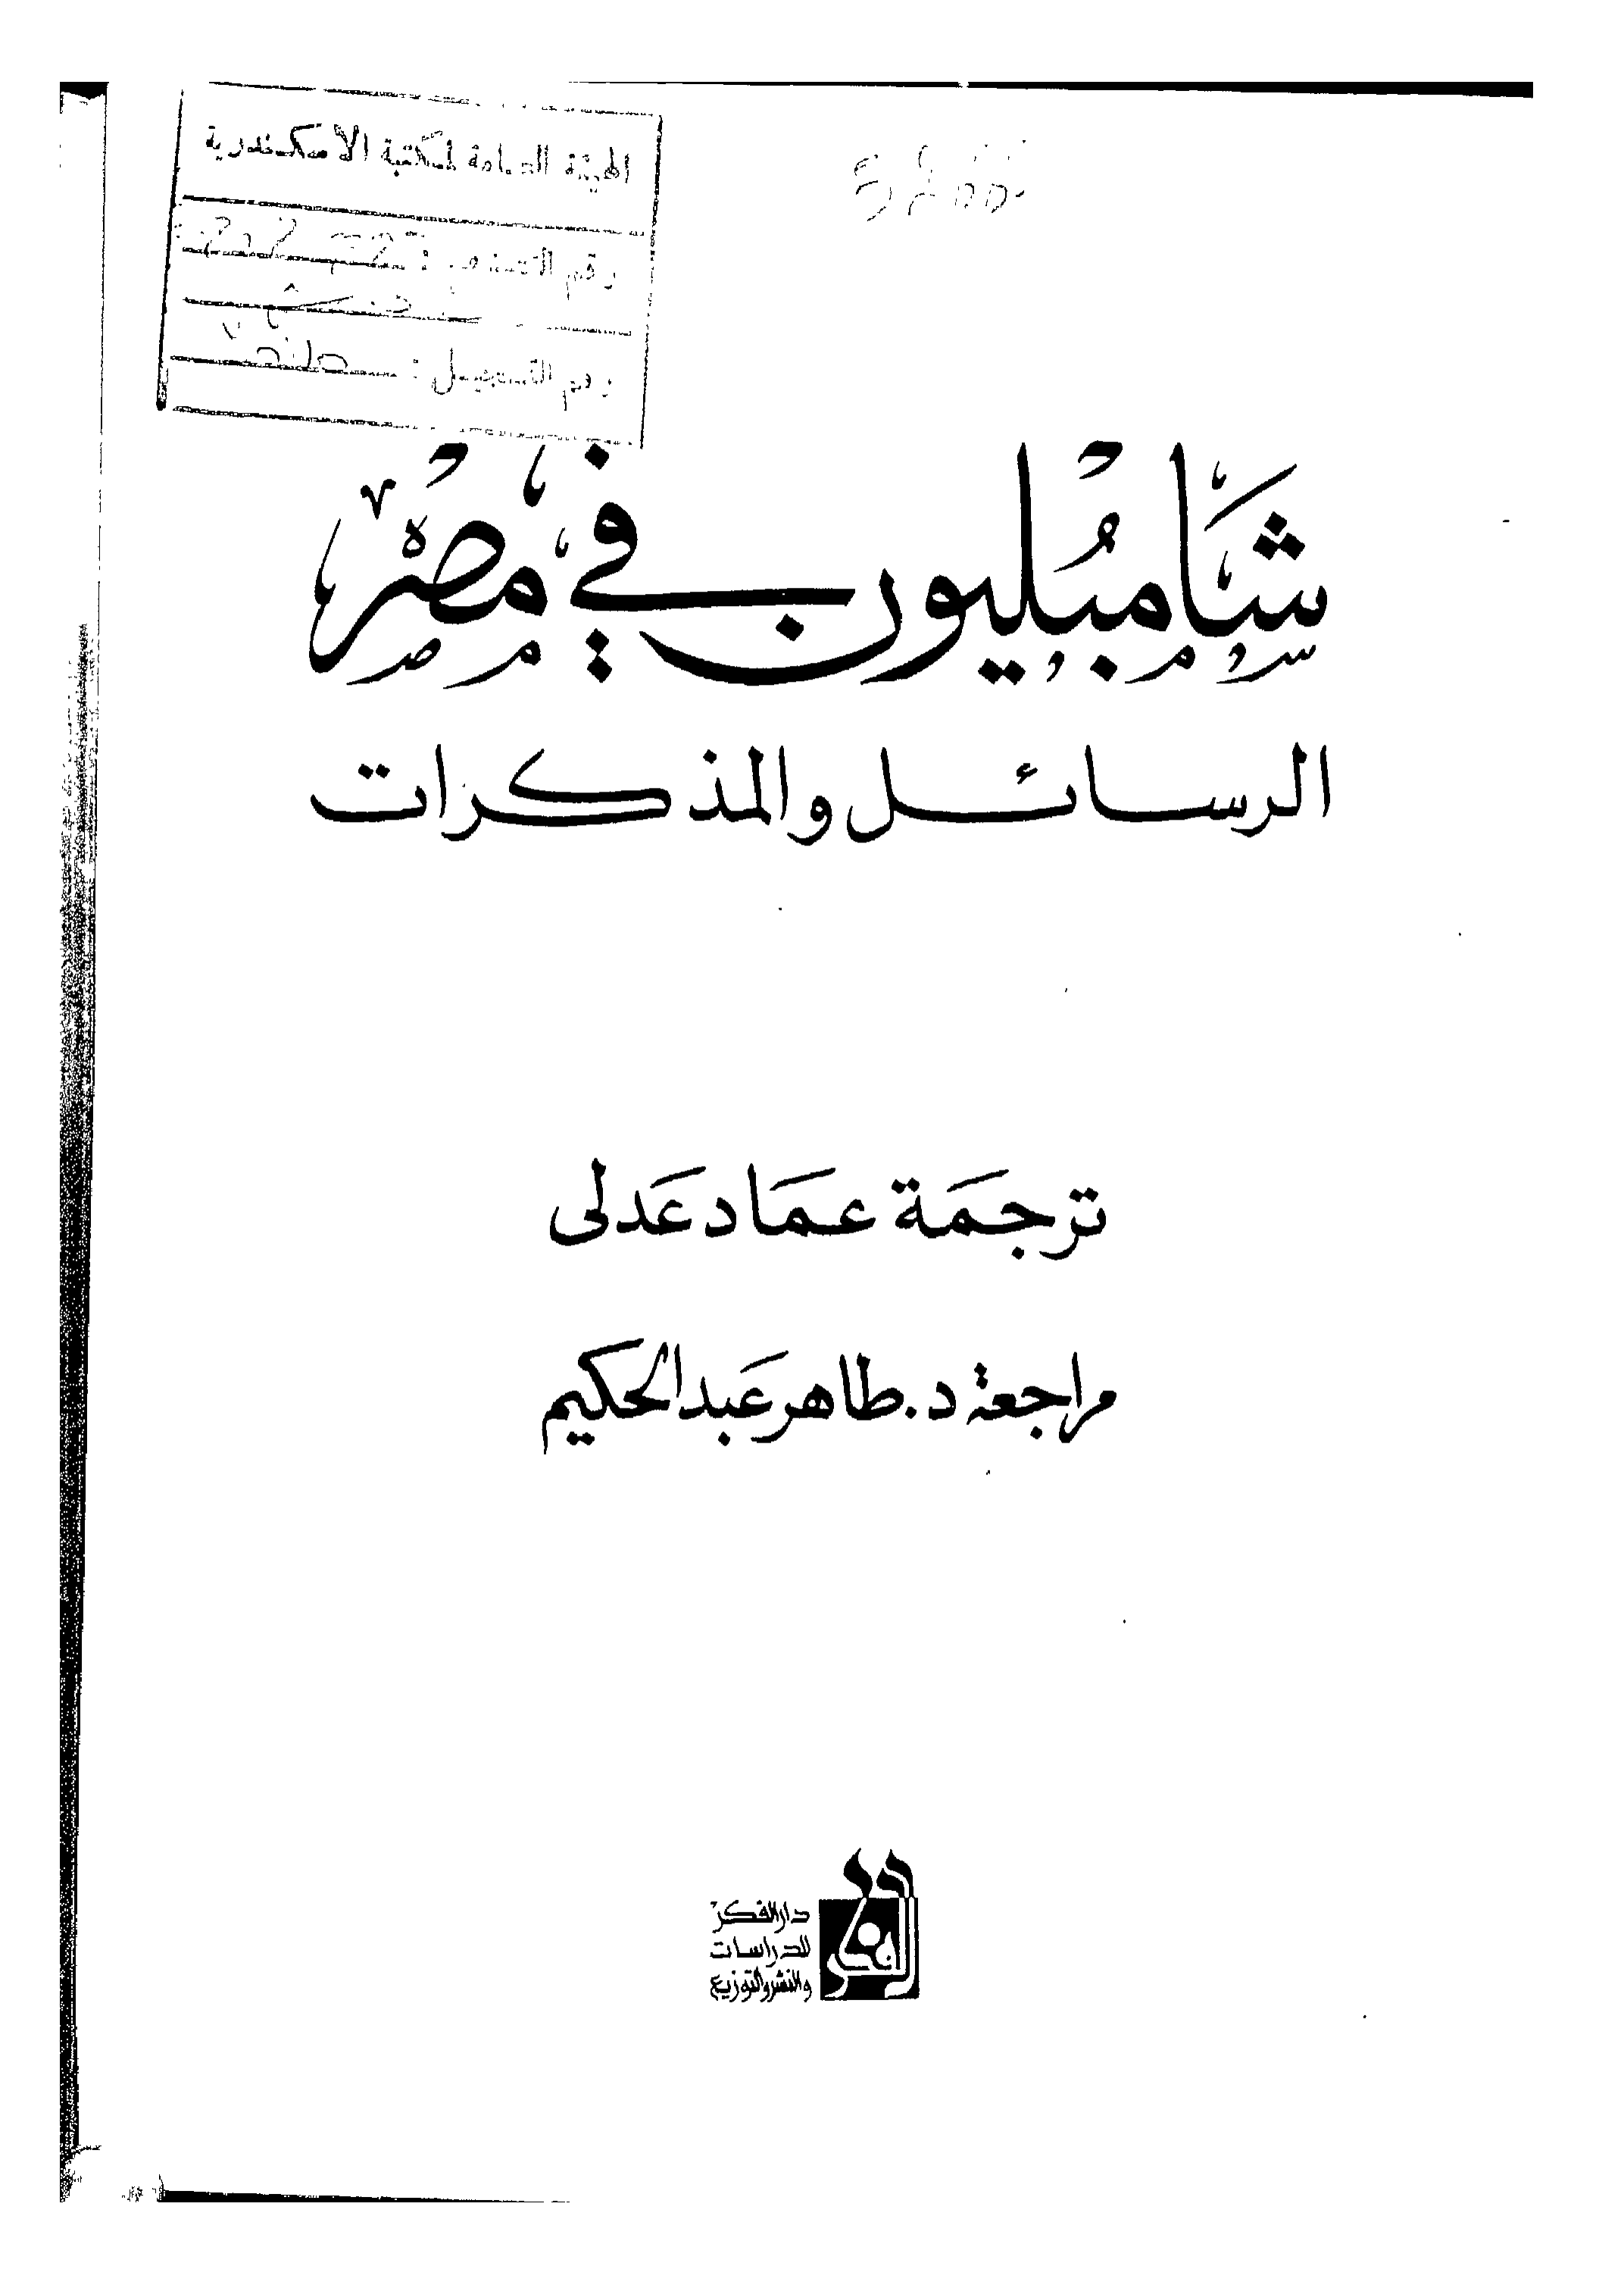 الهيئة العامة لمكتبة الاسكندرية
رقم التصنيف :
رقم التسجيل :
شَامبُليون في مصْر
الرسائل والمذكرات
ترجمَة عمَاد عَدلى
مراجعة د. طاهر عَبد الحكيم
دار الفكر
للدراسات
والنشر والتوزيع